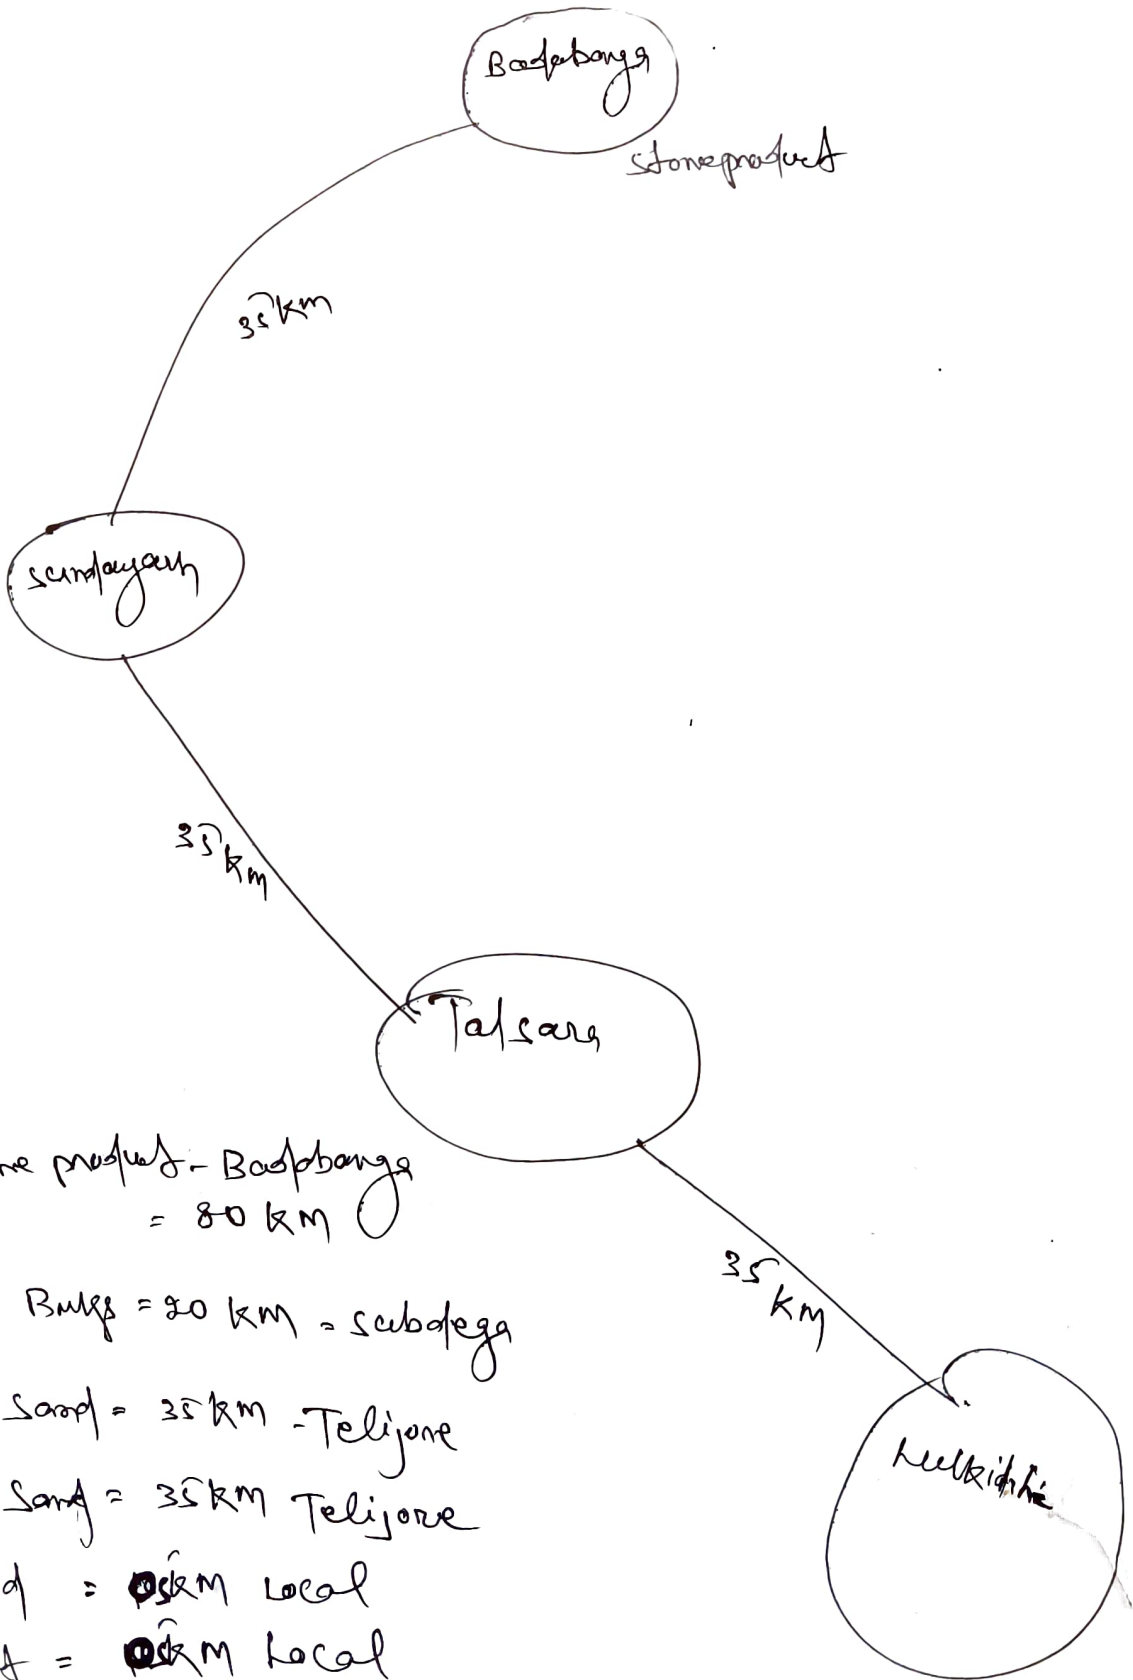 Badabanga
stoneproduct
35 km
Sundargarh
35 km
Talsara
35 km
Lulkidihi
ne product - Badabanga
= 80 KM
= 20 KM - Subdega
Sand = 35 KM - Telijore
Sand = 35 KM Telijore
d = 05 KM Local
t = 05 KM Local